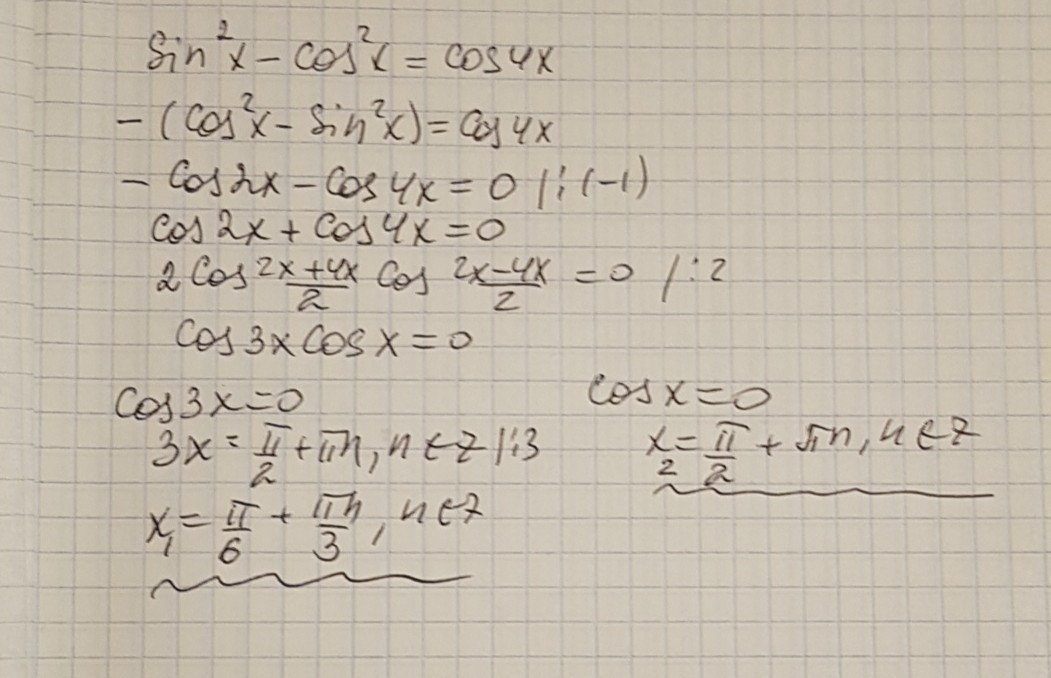 sin²x - cos²x = cos4x
-(cos²x - sin²x) = cos4x
- cos2x - cos4x = 0 |:(-1)
cos2x + cos4x = 0
2 cos (2x+4x)/2 cos (2x-4x)/2 = 0 /:2
cos3x cosx = 0
cos3x = 0
3x = π/2 + πn, n ∈ Z |:3
x₁ = π/6 + πn/3, n ∈ Z
cosx = 0
x₂ = π/2 + πn, n ∈ Z